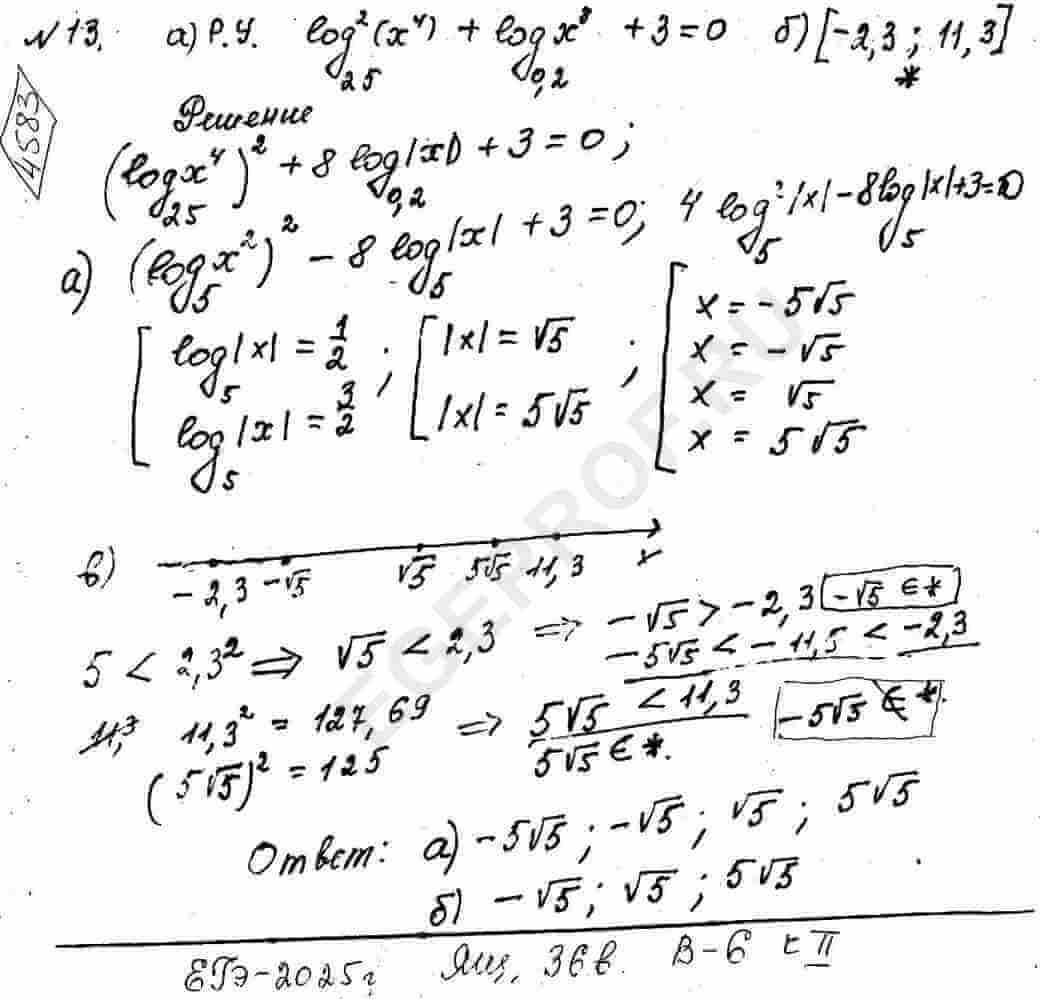 №13. а) Р.У. log²₂₅(x⁴) + log₀,₂ x⁸ + 3 = 0 б) [-2,3 ; 11,3] *
4583
Решение
(log₂₅ x⁴)² + 8 log₀,₂ |x| + 3 = 0 ;
а) (log₅ x²)² - 8 log₅ |x| + 3 = 0; 4 log₅² |x| - 8 log₅ |x| + 3 = 0
[ log₅ |x| = 1/2 ; [ |x| = √5 ; [ x = -5√5
x = -√5
log₅ |x| = 3/2 |x| = 5√5 x = √5
x = 5√5
в) -2,3 -√5 √5 5√5 11,3 x
5 < 2,3² ⇒ √5 < 2,3 ⇒ -√5 > -2,3 -√5 ∈ *
-5√5 < -11,5 < -2,3
11,3² = 127,69 ⇒ 5√5 < 11,3 -5√5 ∉ *.
(5√5)² = 125 5√5 ∈ *.
Ответ: а) -5√5 ; -√5 ; √5 ; 5√5
б) -√5 ; √5 ; 5√5
ЕГЭ-2025г Ящ. 36в. В-6 с II
EGEPROF.RU